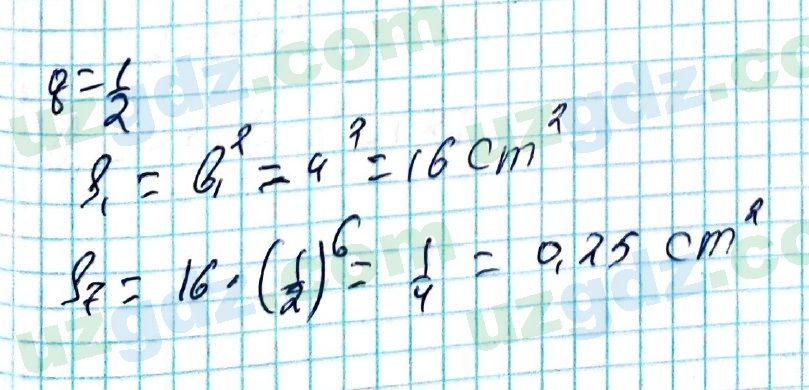 q = 1/2
S₁ = b₁² = 4² = 16 cm²
S₇ = 16 · (1/2)⁶ = 1/4 = 0,25 cm²
uzgdz.com
uzgdz.com
uzgdz.com
uzgdz.com